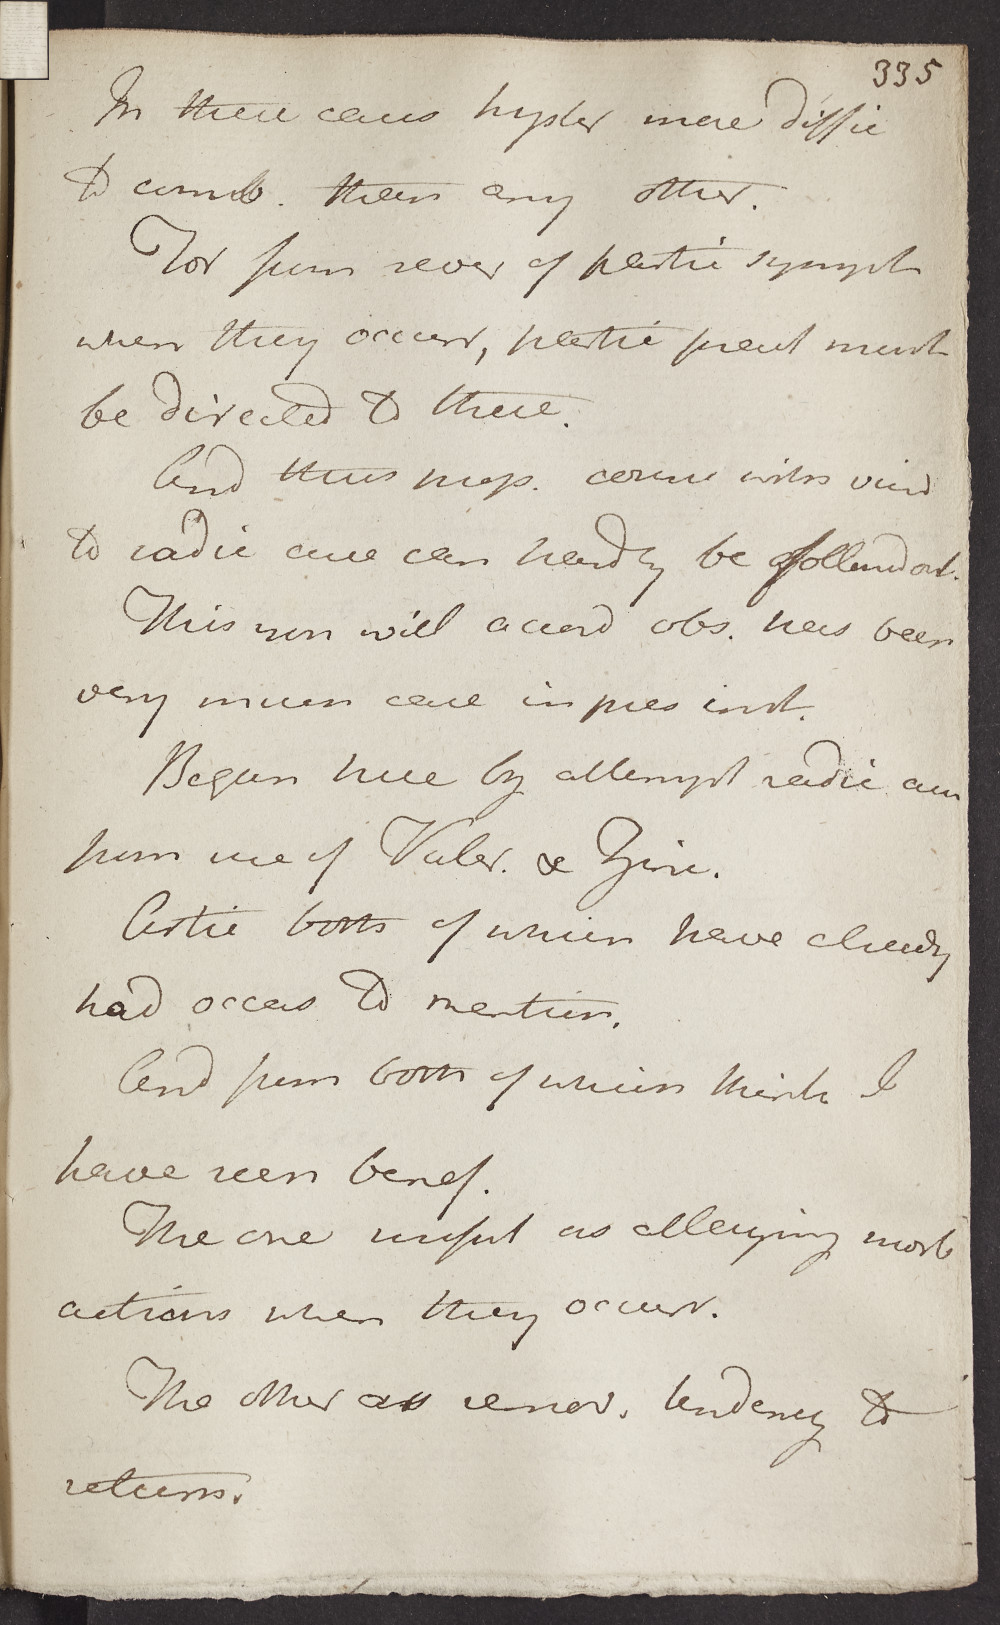 335
In these cases hyster more diffic
to comb. than any other.
For from sever of partic sympt
when they occurr, partic pract must
be directed to these.
And thus prop. course with view
to radic cure can hardly be followd out.
This you will accord obs. has been
very much case in pres inst.
Began here by attempt radic cur
from use of Valer. & Zinc.
Artic both of which have already
had occas to mention.
And from both of which think I
have seen benef.
The one useful as allaying morb
actions when they occurr.
The other as remov. tendency to
returns.